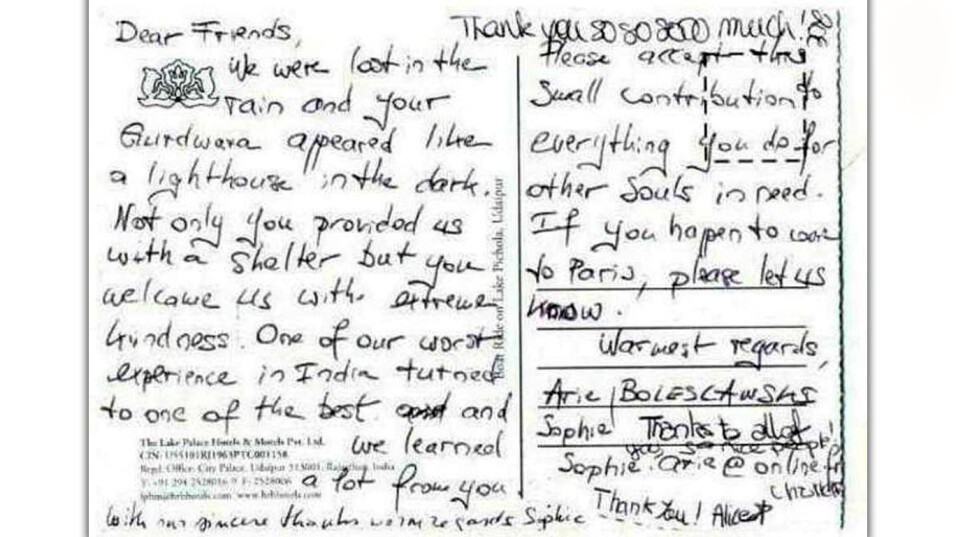 Dear Friends,
We were lost in the
rain and your
Gurdwara appeared like
a lighthouse in the dark.
Not only you provided us
with a shelter but you
welcome us with extreme
kindness. One of our worst
experience in India turned
to one of the best and
we learned
a lot from you
With our sincere thanks warm regards Sophie
The Lake Palace Hotels & Motels Pvt. Ltd.
Regd. Office: City Palace, Udaipur 313001, Rajasthan, India
www.hrhhotels.com
Boat Ride on Lake Pichola, Udaipur
Thank you so so sooo much!
Please accept this
small contribution to
everything you do for
other souls in need.
If you happen to come
to Paris, please let us
know.
Warmest regards,
Arie / BOLESLAWSKI
Sophie Thanks to all of
you, so nice people!
Sophie.arie@online.fr
Thank You! Alice